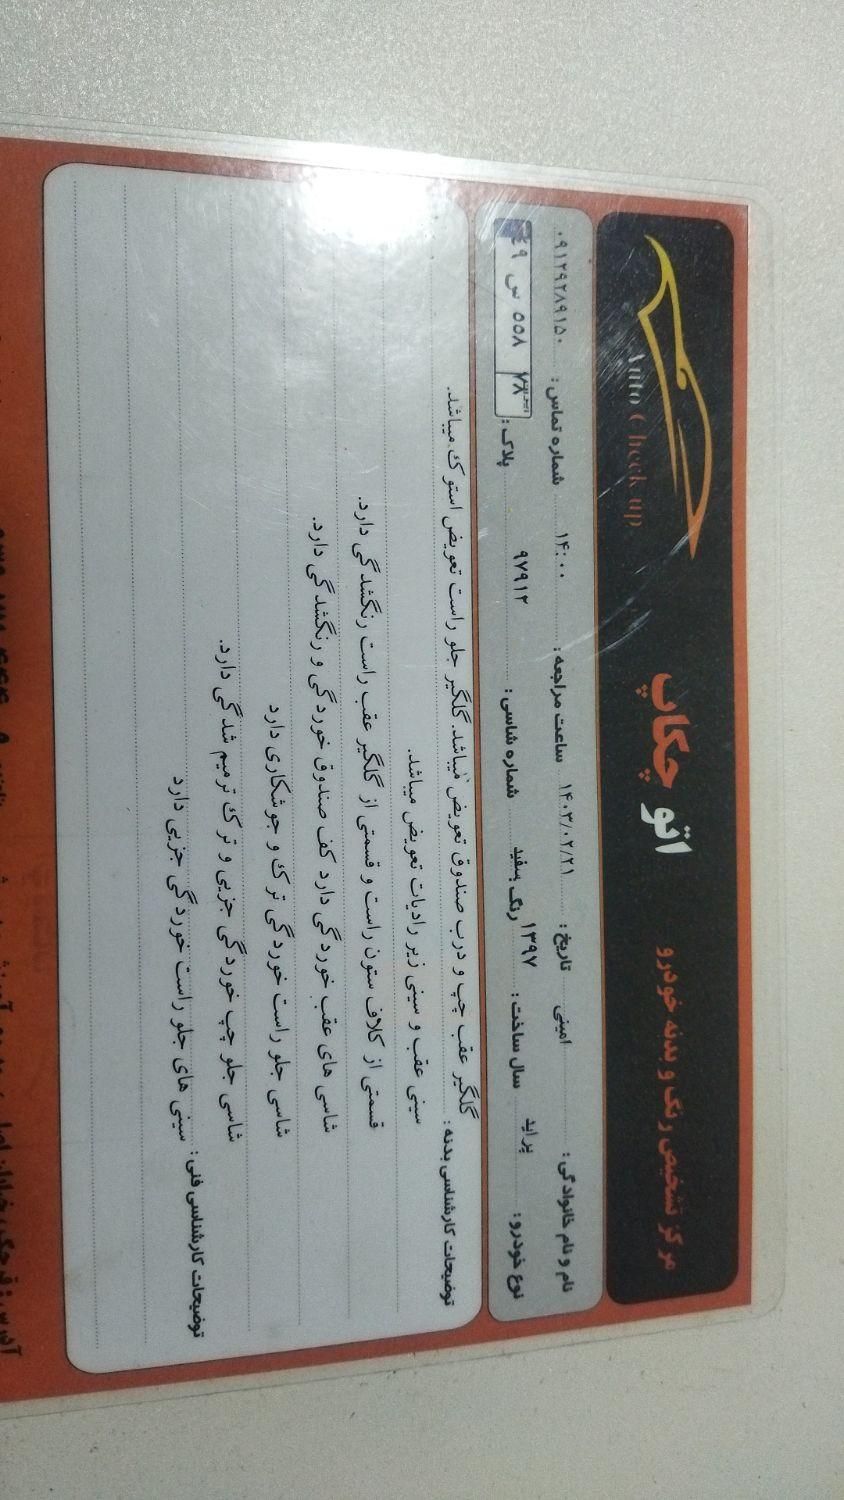 Auto Check up
اتو چکاپ
مرکز تشخیص رنگ و بدنه خودرو
نام و نام خانوادگی: امینی تاریخ: ۱۴۰۳/۰۲/۲۱ ساعت مراجعه: ۱۴:۰۰ شماره تماس: ۰۹۱۲۹۲۸۹۱۵۰
نوع خودرو: پراید سال ساخت: ۱۳۹۷ رنگ سفید شماره شاسی: ۹۷۹۱۲ پلاک: ۴۹ س ۵۵۸ ۷۸
توضیحات کارشناسی بدنه: گلگیر عقب چپ و درب صندوق تعویض میباشد. گلگیر جلو راست تعویض استوک میباشد.
سینی عقب و سینی زیر رادیات تعویض میباشد.
قسمتی از کلاف ستون راست و قسمتی از گلگیر عقب راست رنگشدگی دارد.
شاسی های عقب خوردگی دارد کف صندوق خوردگی و رنگشدگی دارد.
شاسی جلو راست خوردگی ترک و جوشکاری دارد
شاسی جلو چپ خوردگی جزیی و ترک ترمیم شدگی دارد.
توضیحات کارشناسی فنی: سینی های جلو راست خوردگی جزیی دارد